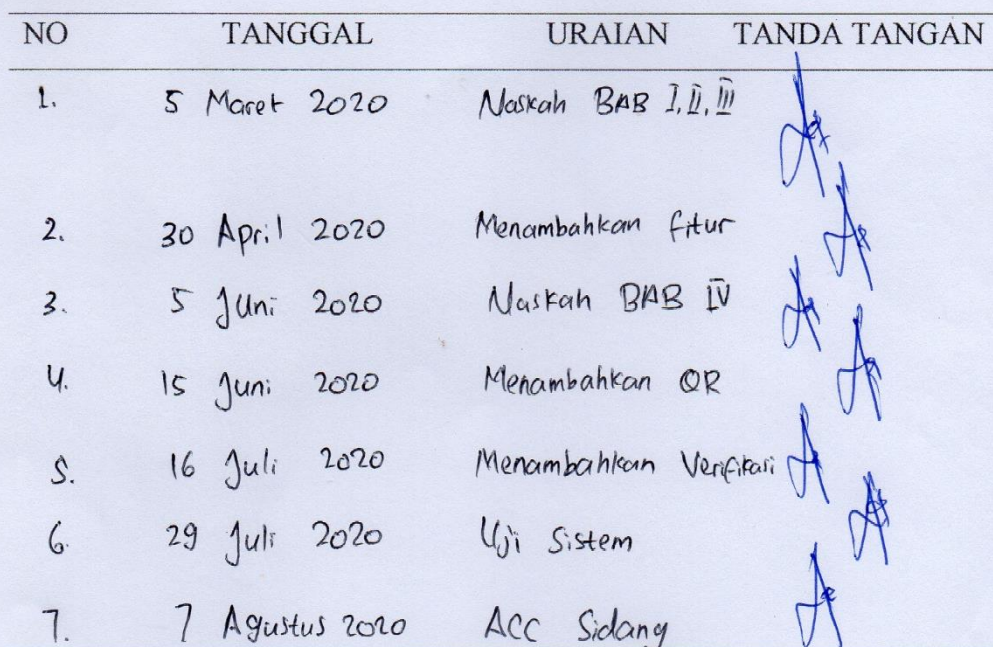 NO TANGGAL URAIAN TANDA TANGAN
1. 5 Maret 2020 Naskah BAB I, II, III
2. 30 April 2020 Menambahkan fitur
3. 5 Juni 2020 Naskah BAB IV
4. 15 Juni 2020 Menambahkan QR
5. 16 Juli 2020 Menambahkan Verifikasi
6. 29 Juli 2020 Uji Sistem
7. 7 Agustus 2020 ACC Sidang